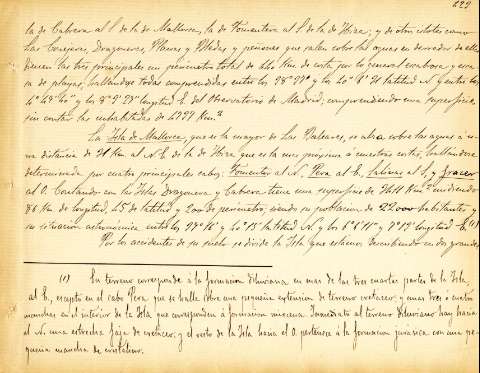 222
la de Cabrera al S. de la de Mallorca, la de Formentera al S. de la de Ibiza; y de otros islotes como
las Conejeras, Dragoneras, Planas y Medas y peñones que salen sobre las aguas en derredor de ellas
Tienen las tres principales un perímetro total de Km. de costa por lo general escabrosa y
de playas, hallándose todas comprendidas entre los 38° y los 40° latitud N. y entre los
y los longitud E. del Observatorio de Madrid, comprendiendo una superficie,
sin contar las inhabitadas de Km.²
La Isla de Mallorca, que es la mayor de las Baleares, se alza sobre las aguas á u-
na distancia de Km. al N. E. de la de Ibiza que es la mas próxima á nuestras costas, hallándose
determinada por cuatro principales cabos: Formentor al N., Pera al E., Salinas al S. y Grocer
al O. Contando con las Islas Dragonera y Cabrera tiene una superficie de Km.² midiendo
86 Km. de longitud, de latitud y de perímetro, siendo su población de habitantes y
su situación astronómica entre los y latitud N. y los y longitud E. (1)
Por los accidentes de su suelo se divide la Isla que estamos describiendo en dos grandes
(1) Su terreno corresponde á la formacion Diluviana en mas de las tres cuarta partes de la Isla,
al E., escepto en el cabo Pera que se halla sobre una pequeña estension de terreno cretaceo; y unas tres o cuatro
manchas en el interior de la Isla que corresponden á formacion miocena. Inmediato al terreno Diluviano hay hacia
el N. una estrecha faja de cretaceo, y el resto de la Isla hacia el O. pertenece á la formacion jurásica con una pe-
queña mancha de cristalino.